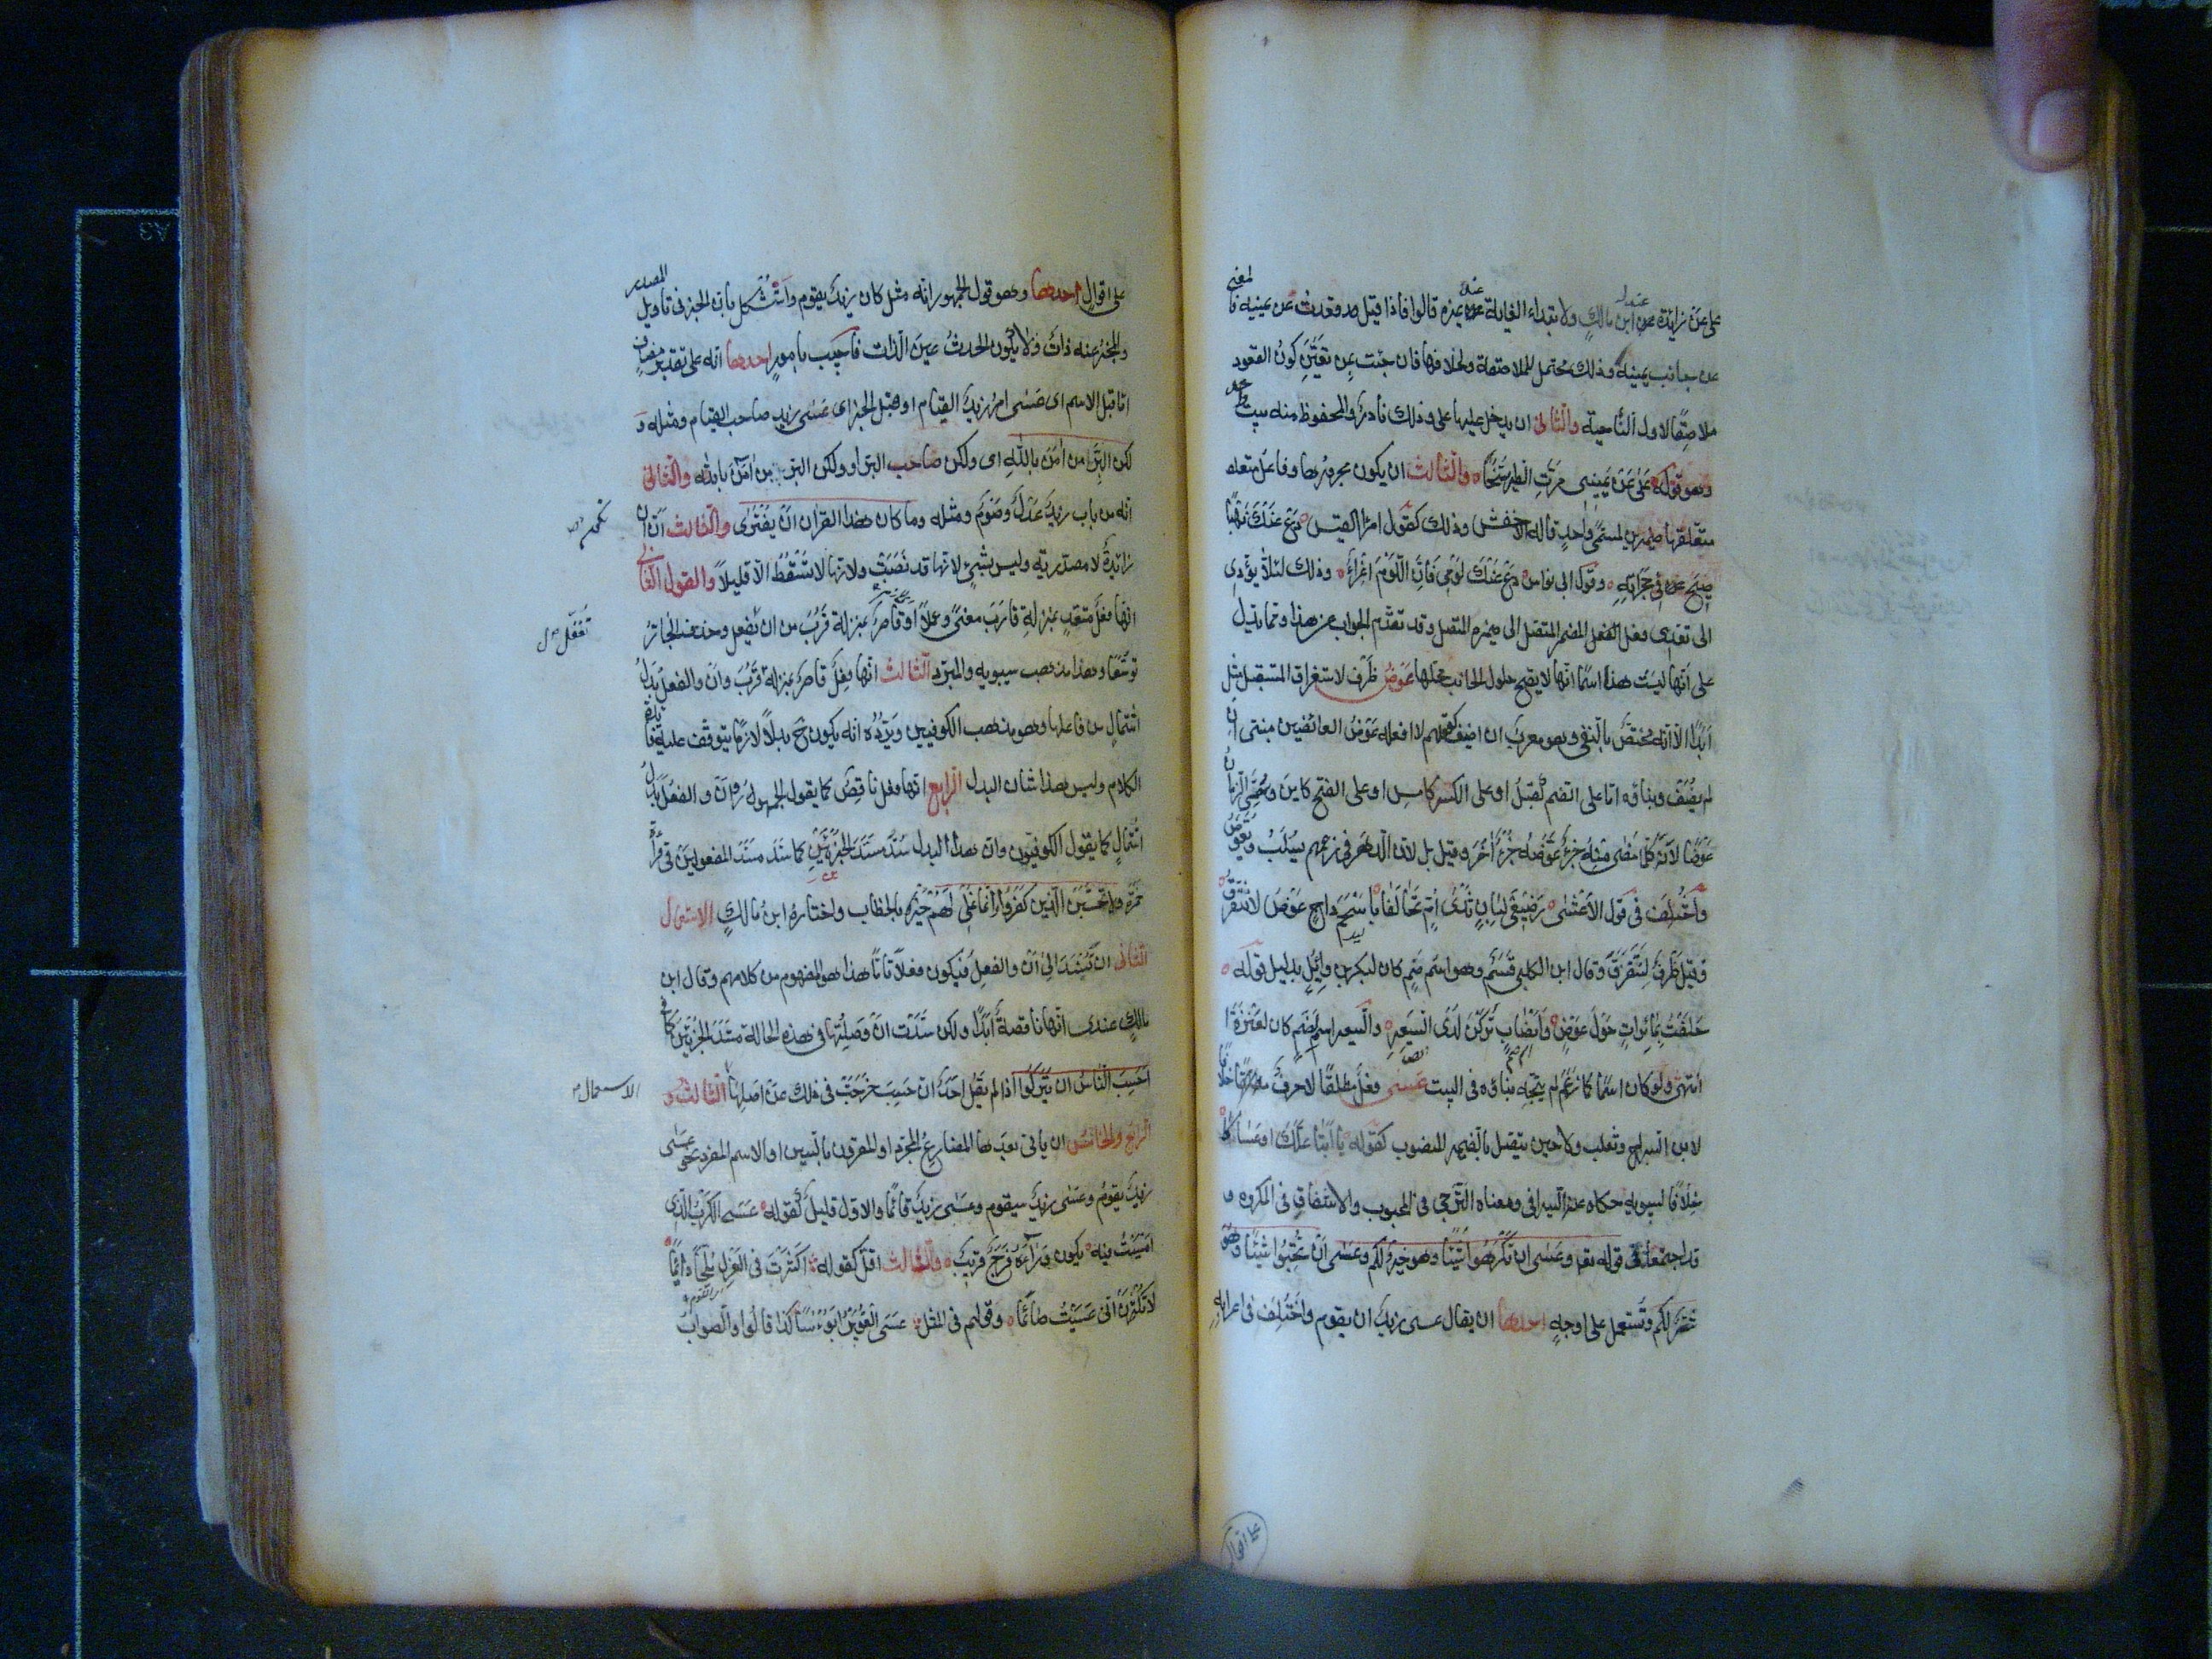 على عن زائدة عند ابن مالك ولابتداء الغاية عند غيره قالوا فاذا قيل قعدت عن يمينه فالمعنى
عن جانب يمينه وذلك محتمل للملاصقة ولخلافها فان جئت بمن تعين كون القعود
ملاصقا لاول الناحية والثانى ان يدخل عليها على وذلك نادر والمحفوظ منه بيت واحد
وهو قوله على عن يمينى مرت الطير سنحا والثالث ان يكون مجرورها وفاعل متعلقها
ضميرين لمسمى واحد قاله الاخفش وذلك كقول امرئ القيس دع عنك نهبا
صيح فى حجراته وقول ابى نواس دع عنك لومى فان اللوم اغراء وذلك لئلا يؤدى
الى تعدى فعل المضمر المتصل الى ضميره المتصل وقد تقدم الجواب عن هذا ومما يدل
على انها ليست هنا اسما انها لا يصح حلول الجانب محلها عوض ظرف لاستغراق المستقبل مثل
ابدا الا انه مختص بالنفى وهو معرب ان اضيف كقولهم لا افعله عوض العائضين مبنى ان
لم يضف وبناؤه اما على الضم كقبل او على الكسر كامس او على الفتح كاين وسمى الزمان
عوضا لانه كلما مضى منه جزء عوضه جزء اخر وقيل بل لان الدهر فى زعمهم يسلب ويعوض
واختلف فى قول الاعشى رضيعى لبان ثدى ام تحالفا باسحم داج عوض لا نتفرق
فقيل ظرف لنتفرق وقال ابن الكلبى قسم وهو اسم صنم كان لبكر بن وائل بدليل قوله
حلفت بمائرات حول عوض وانصاب تركن لدى السعير والسعير اسم لصنم كان لعنزة
انتهى ولو كان اسما كما زعم لم يتجه بناؤه فى البيت عسى فعل مطلقا لا حرف مطلقا خلافا
لابن السراج وثعلب ولا حين يتصل بالضمير المنصوب كقوله يا ابتا علك او عساكا
خلافا لسيبويه حكاه عنه السيرافى ومعناه الترجى فى المحبوب والاشفاق فى المكروه و
قد اجتمعا فى قوله تعم وعسى ان تكرهوا شيئا وهو خير لكم وعسى ان تحبوا شيئا وهو
شر لكم وتستعمل على اوجه احدها ان يقال عسى زيد ان يقوم واختلف فى اعرابه
على اقوال
على اقوال احدها وهو قول الجمهور انه مثل كان زيد يقوم واستشكل بان الخبر فى تاويل المصدر
والمخبر عنه ذات ولا يكون الحدث عين الذات فاجيب بامور احدها انه على تقدير مضاف
اما قبل الاسم اى عسى امر زيد القيام او قبل الخبر اى عسى زيد صاحب القيام ومثله و
لكن البر من امن بالله اى ولكن صاحب البر او ولكن البر بر من آمن بالله والثانى
انه من باب زيد عدل وصوم ومثله وما كان هذا القران ان يفترى والثالث ان ان
زائدة لا مصدرية وليس بشىء لانها قد نصبت ولانها لا تسقط الا قليلا والقول الثانى
انها فعل متعد بمنزلة قارب معنى وعملا او قاصر بمنزلة قرب من ان يفعل وحذف الجار
توسعا وهذا مذهب سيبويه والمبرد الثالث انها فعل قاصر بمنزلة قرب وان والفعل بدل
اشتمال من فاعلها وهو مذهب الكوفيين ويرده انه يكون ح بدلا لازما يتوقف عليه فائدة
الكلام وليس هذا شان البدل الرابع انها فعل ناقص كما يقول الجمهور وان والفعل بدل
اشتمال كما يقول الكوفيون وان هذا البدل سد مسد الجزئين كما سد مسد المفعولين فى قراءة
حمزة ولا تحسبن الذين كفروا انما نملى لهم خير بالخطاب واختاره ابن مالك الاستعمال
الثانى ان تسند الى ان والفعل فيكون فعلا تاما هذا هو المفهوم من كلامهم وقال ابن
مالك عندى انها ناقصة ابدا ولكن سدت ان وصلتها فى هذه الحالة مسد الجزئين كما فى
احسب الناس ان يتركوا اذ لم يقل احد ان حسب خرجت فى ذلك عن اصلها الثالث و
الرابع والخامس ان ياتى بعدها المضارع المجرد او المقرون بالسين او الاسم المفرد نحو عسى
زيد يقوم وعسى زيد سيقوم وعسى زيد قائما والاول قليل كقوله عسى الكرب الذى
امسيت فيه يكون وراءه فرج قريب والثالث اقل كقوله اكثرت فى العذل ملحا دائما
لا تكثرن انى عسيت صائما وقولهم فى المثل عسى الغوير ابؤسا كذا قالوا والصواب